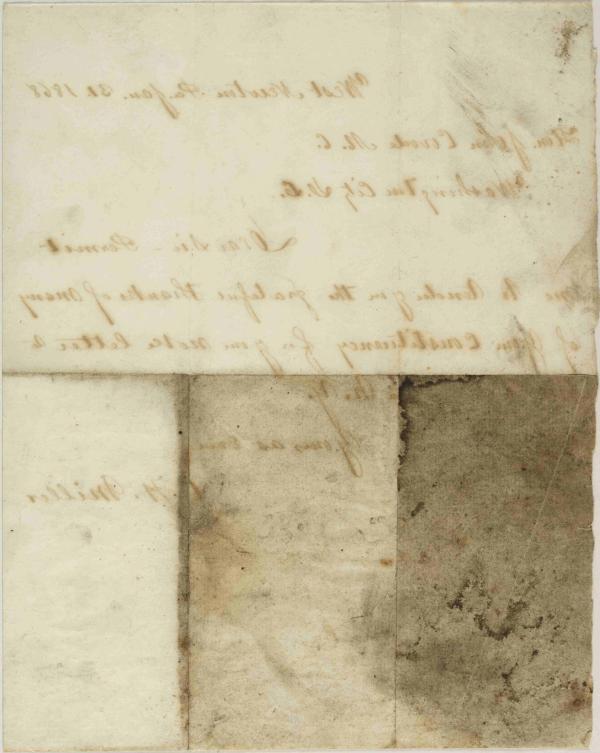 West Newton Pa Jan. 31 1868
Hon. John Covode M. C.
Washington City D.C.
Dear Sir - Permit
me to tender you the grateful thanks of many
of your Constituency for your noble letter to
Yours as ever
H. Miller